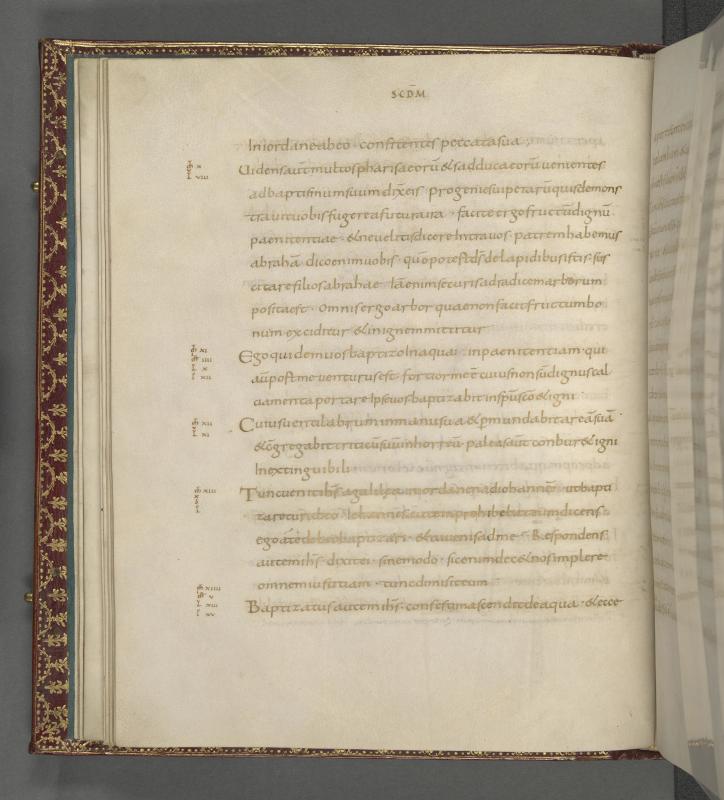 SCDM
In iordane ab eo · confitentes peccata sua ;
Uidens aut multos pharisaeorū & sadducaeorū uenientes
ad baptismum suum dix eis · progenies uiperarū quis demons
trauit uobis fugere a futura ira · facite ergo fructū dignū
paenitentiae · & ne uelitis dicere Intra uos · patrem habemus
abrahā dico enim uobis · quō potest ds de lapidibus istis sus
citare filios abrahae Iā enim securis ad radicem arborum
posita est · Omnis ergo arbor quae non facit fructum bo
num exciditur & in igne mittitur
Ego quidem uos baptizo In aqua · in paenitentiam · qui
aūt post me uenturus est · fortior me ē cuius non sū dignus cal
ciamenta portare Ipse uos baptizabit in spū sco & igni
Cuius uentilabrum in manu sua & pmundabit areā suā
& cōgregabit triticū suū in horreū · paleas aūt conbur& igni
Inextinguibili
Tunc uenit ihs a galilea in iordanen ad iohannen · ut bapti
zaretur ab eo Iohannes autem prohibebat eum dicens ·
ego a te debeo baptizari · & tu uenis ad me · Respondens
autem ihs · dixit ei · sine modo · sic enim dec& nos implere
omnem iustitiam · tunc dimisit eum
Baptizatus autem ihs · confestim ascendit de aqua · & ecce